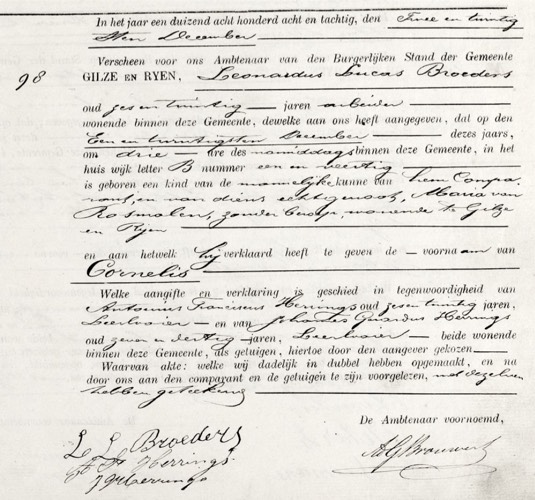 In het jaar een duizend acht honderd acht en tachtig, den Twee en twintig
sten December
98
Verscheen voor ons Ambtenaar van den Burgerlijken Stand der Gemeente
GILZE EN RYEN, Leonardus Lucas Broeders
oud zes en twintig jaren arbeider
wonende binnen deze Gemeente, dewelke aan ons heeft aangegeven, dat op den
Een en twintigsten December dezes jaars,
om drie ure des namiddags binnen deze Gemeente, in het
huis wijk letter B nummer een en veertig
is geboren een kind van de mannelijke kunne van hem Compa-
rant, en van diens echtgenoot, Maria van
Rosmalen, zonder beroep, wonende te Gilze
en Rijen
en aan hetwelk hij verklaard heeft te geven de voornaam van
Cornelis
Welke aangifte en verklaring is geschied in tegenwoordigheid van
Antonius Franciscus Herrings oud zes en twintig jaren,
Leerlooier en van Johannes Herrings
oud zeven en dertig jaren, Leerlooier beide wonende
binnen deze Gemeente, als getuigen, hiertoe door den aangever gekozen
Waarvan akte: welke wij dadelijk in dubbel hebben opgemaakt, en na
door ons aan den comparant en de getuigen te zijn voorgelezen, met dezelven
hebben geteekend
De Ambtenaar voornoemd,
L. L. Broeders
A F Herrings